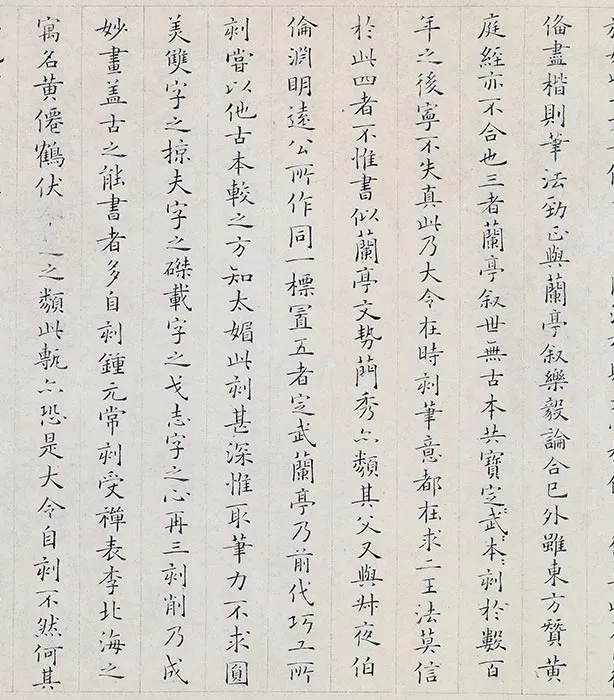 俻盡楷則筆法勁正與蘭亭叙樂毅論合巳外雖東方贊黄
庭經亦不合也三者蘭亭叙世無古本共寶定武本刻於數百
年之後寧不失真此乃大令在時刻筆意都在求二王法莫信
於此四者不惟書似蘭亭文勢蕳秀亦類其父又與叔夜伯
倫淵明遠公所作同一標置五者定武蘭亭乃前代巧工所
刻嘗以他古本較之方知太媚此刻甚深惟取筆力不求圓
美雙字之掠夫字之磔載字之戈志字之心再三刻削乃成
妙畫盖古之能書者多自刻鍾元常刻受禪表李北海之
寓名黄僊鶴伏之類此甎亦恐是大令自刻不然何其